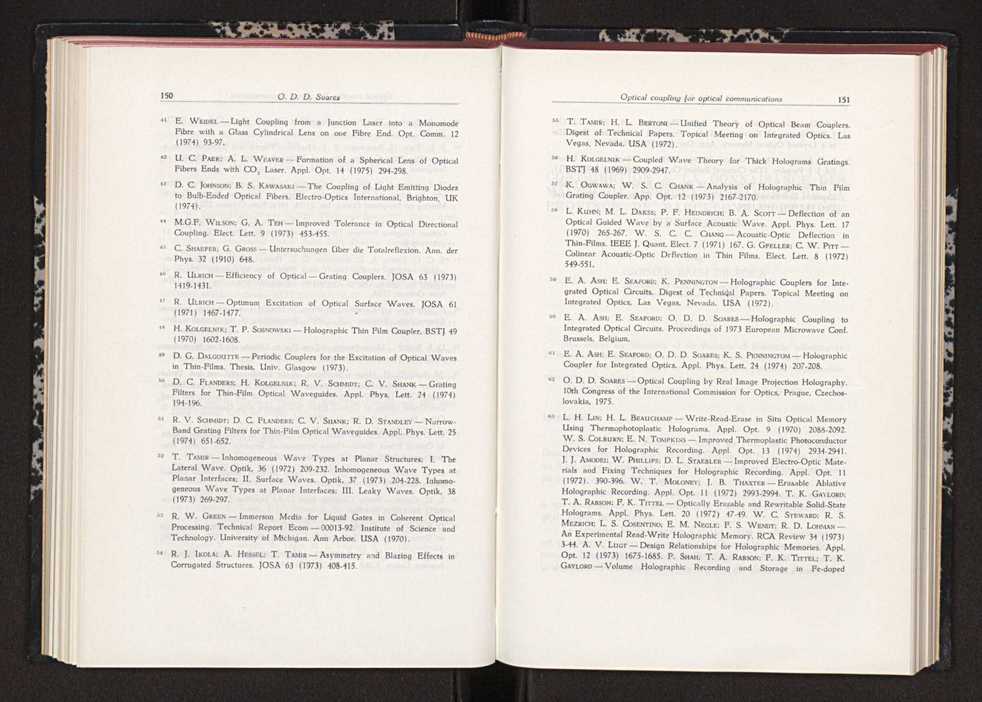 150 O. D. D. Soares
41 E. Weidel — Light Coupling from a Junction Laser into a Monomode
Fibre with a Glass Cylindrical Lens on one Fibre End. Opt. Comm. 12
(1974) 93-97.
42 U. C. Paek; A. L. Weaver — Formation of a Spherical Lens of Optical
Fibers Ends with CO2 Laser. Appl. Opt. 14 (1975) 294-298.
43 D. C. Johnson; B. S. Kawasaki — The Coupling of Light Emitting Diodes
to Bulb-Ended Optical Fibers. Electro-Optics International, Brighton, UK
(1974).
44 M.G.F. Wilson; G. A. Teh — Improved Tolerance in Optical Directional
Coupling. Elect. Lett. 9 (1973) 453-455.
45 C. Shaefer; G. Gross — Untersuchungen Über die Totalreflexion. Ann. der
Phys. 32 (1910) 648.
46 R. Ulrich — Efficiency of Optical — Grating Couplers. JOSA 63 (1973)
1419-1431.
47 R. Ulrich — Optimum Excitation of Optical Surface Waves. JOSA 61
(1971) 1467-1477.
48 H. Kolgelnik; T. P. Sosnowski — Holographic Thin Film Coupler. BSTJ 49
(1970) 1602-1608.
49 D. G. Dalgoutte — Periodic Couplers for the Excitation of Optical Waves
in Thin-Films. Thesis, Univ. Glasgow (1973).
50 D. C. Flanders; H. Kolgelnik; R. V. Schmidt; C. V. Shank — Grating
Filters for Thin-Film Optical Waveguides. Appl. Phys. Lett. 24 (1974)
194-196.
51 R. V. Schmidt; D. C. Flanders; C. V. Shank; R. D. Standley — Narrow-
Band Grating Filters for Thin-Film Optical Waveguides. Appl. Phys. Lett. 25
(1974) 651-652.
52 T. Tamir — Inhomogeneous Wave Types at Planar Structures; I. The
Lateral Wave. Optik, 36 (1972) 209-232. Inhomogeneous Wave Types at
Planar Interfaces; II. Surface Waves. Optik, 37 (1973) 204-228. Inhomo-
geneous Wave Types at Planar Interfaces; III. Leaky Waves. Optik, 38
(1973) 269-297.
53 R. W. Green — Immerson Media for Liquid Gates in Coherent Optical
Processing. Technical Report Ecom — 00013-92. Institute of Science and
Technology. University of Michigan. Ann Arboe. USA (1970).
54 R. J. Ikola; A. Hessel; T. Tamir — Asymmetry and Blazing Effects in
Corrugated Structures. JOSA 63 (1973) 408-415.
Optical coupling for optical communications 151
55 T. Tamir; H. L. Bertoni — Unified Theory of Optical Beam Couplers.
Digest of Technical Papers. Topical Meeting on Integrated Optics. Las
Vegas, Nevada. USA (1972).
56 H. Kolgelnik — Coupled Wave Theory for Thick Holograms Gratings.
BSTJ 48 (1969) 2909-2947.
57 K. Ogwawa; W. S. C. Chank — Analysis of Holographic Thin Film
Grating Coupler. App. Opt. 12 (1973) 2167-2170.
58 L. Kuhn; M. L. Dakss; P. F. Heindrich; B. A. Scott — Deflection of an
Optical Guided Wave by a Surface Acoustic Wave. Appl. Phys. Lett. 17
(1970) 265-267. W. S. C. C. Chang — Acoustic-Optic Deflection in
Thin-Films. IEEE J. Quant. Elect. 7 (1971) 167. G. Gfeller; C. W. Pitt —
Colinear Acoustic-Optic Deflection in Thin Films. Elect. Lett. 8 (1972)
549-551.
59 E. A. Ash; E. Seaford; K. Pennington — Holographic Couplers for Inte-
grated Optical Circuits. Digest of Technical Papers. Topical Meeting on
Integrated Optics, Las Vegas, Nevada. USA (1972).
60 E. A. Ash; E. Seaford; O. D. D. Soares — Holographic Coupling to
Integrated Optical Circuits. Proceedings of 1973 European Microwave Conf.
Brussels, Belgium.
61 E. A. Ash; E. Seaford; O. D. D. Soares; K. S. Pennington — Holographic
Coupler for Integrated Optics. Appl. Phys. Lett. 24 (1974) 207-208.
62 O. D. D. Soares — Optical Coupling by Real Image Projection Holography.
10th Congress of the International Commission for Optics, Prague, Czechos-
lovakia, 1975.
63 L. H. Lin; H. L. Beauchamp — Write-Read-Erase in Situ Optical Memory
Using Thermophotoplastic Holograms. Appl. Opt. 9 (1970) 2088-2092.
W. S. Colburn; E. N. Tompkins — Improved Thermoplastic Photoconductor
Devices for Holographic Recording. Appl. Opt. 13 (1974) 2934-2941.
J. J. Amodei; W. Phillips; D. L. Staebler — Improved Electro-Optic Mate-
rials and Fixing Techniques for Holographic Recording. Appl. Opt. 11
(1972). 390-396. W. T. Moloney; J. B. Thaxter — Erasable Ablative
Holographic Recording. Appl. Opt. 11 (1972) 2993-2994. T. K. Gaylord;
T. A. Rabson; F. K. Tittel — Optically Erasable and Rewritable Solid-State
Holograms. Appl. Phys. Lett. 20 (1972) 47-49. W. C. Steward; R. S.
Mezrich; L. S. Cosentino; E. M. Negle; F. S. Wendt; R. D. Lohman —
An Experimental Read-Write Holographic Memory. RCA Review 34 (1973)
3-44. A. V. Lugt — Design Relationships for Holographic Memories. Appl.
Opt. 12 (1973) 1675-1685. P. Shah; T. A. Rabson; F. K. Tittel; T. K.
Gaylord — Volume Holographic Recording and Storage in Fe-doped